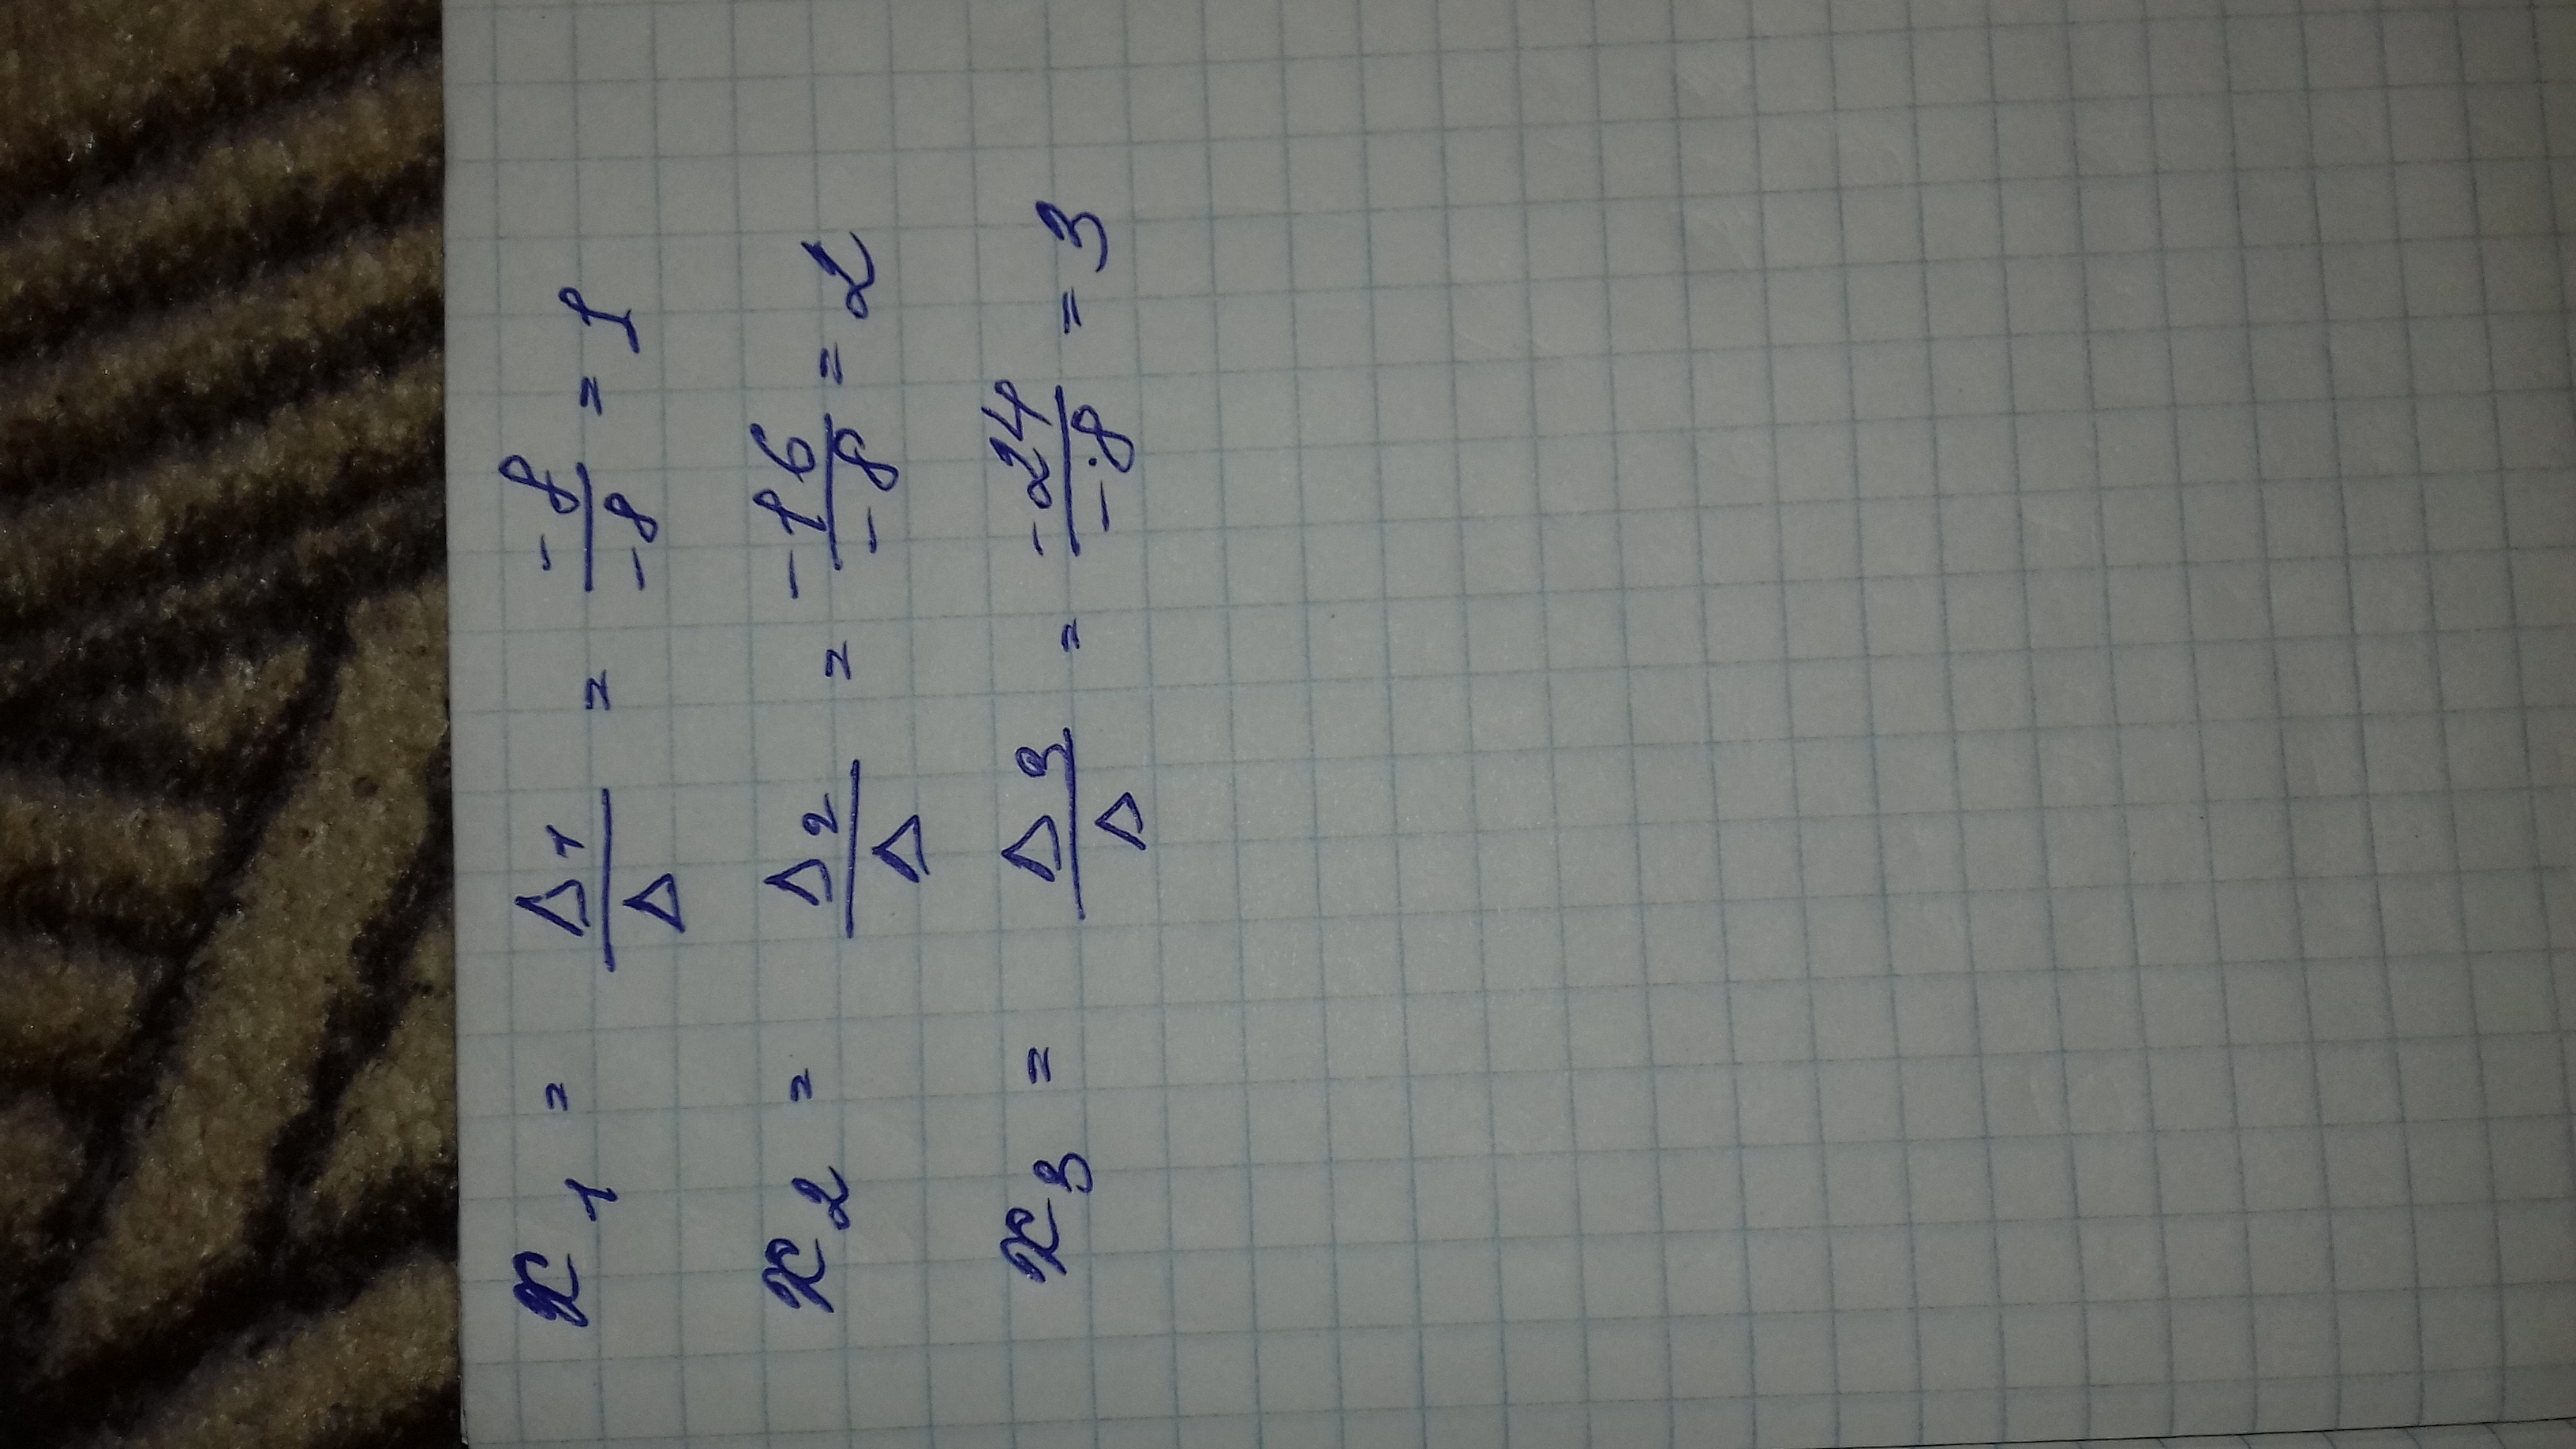 x₁ = Δ1/Δ = -8/-8 = 1
x₂ = Δ2/Δ = -16/-8 = 2
x₃ = Δ3/Δ = -24/-8 = 3